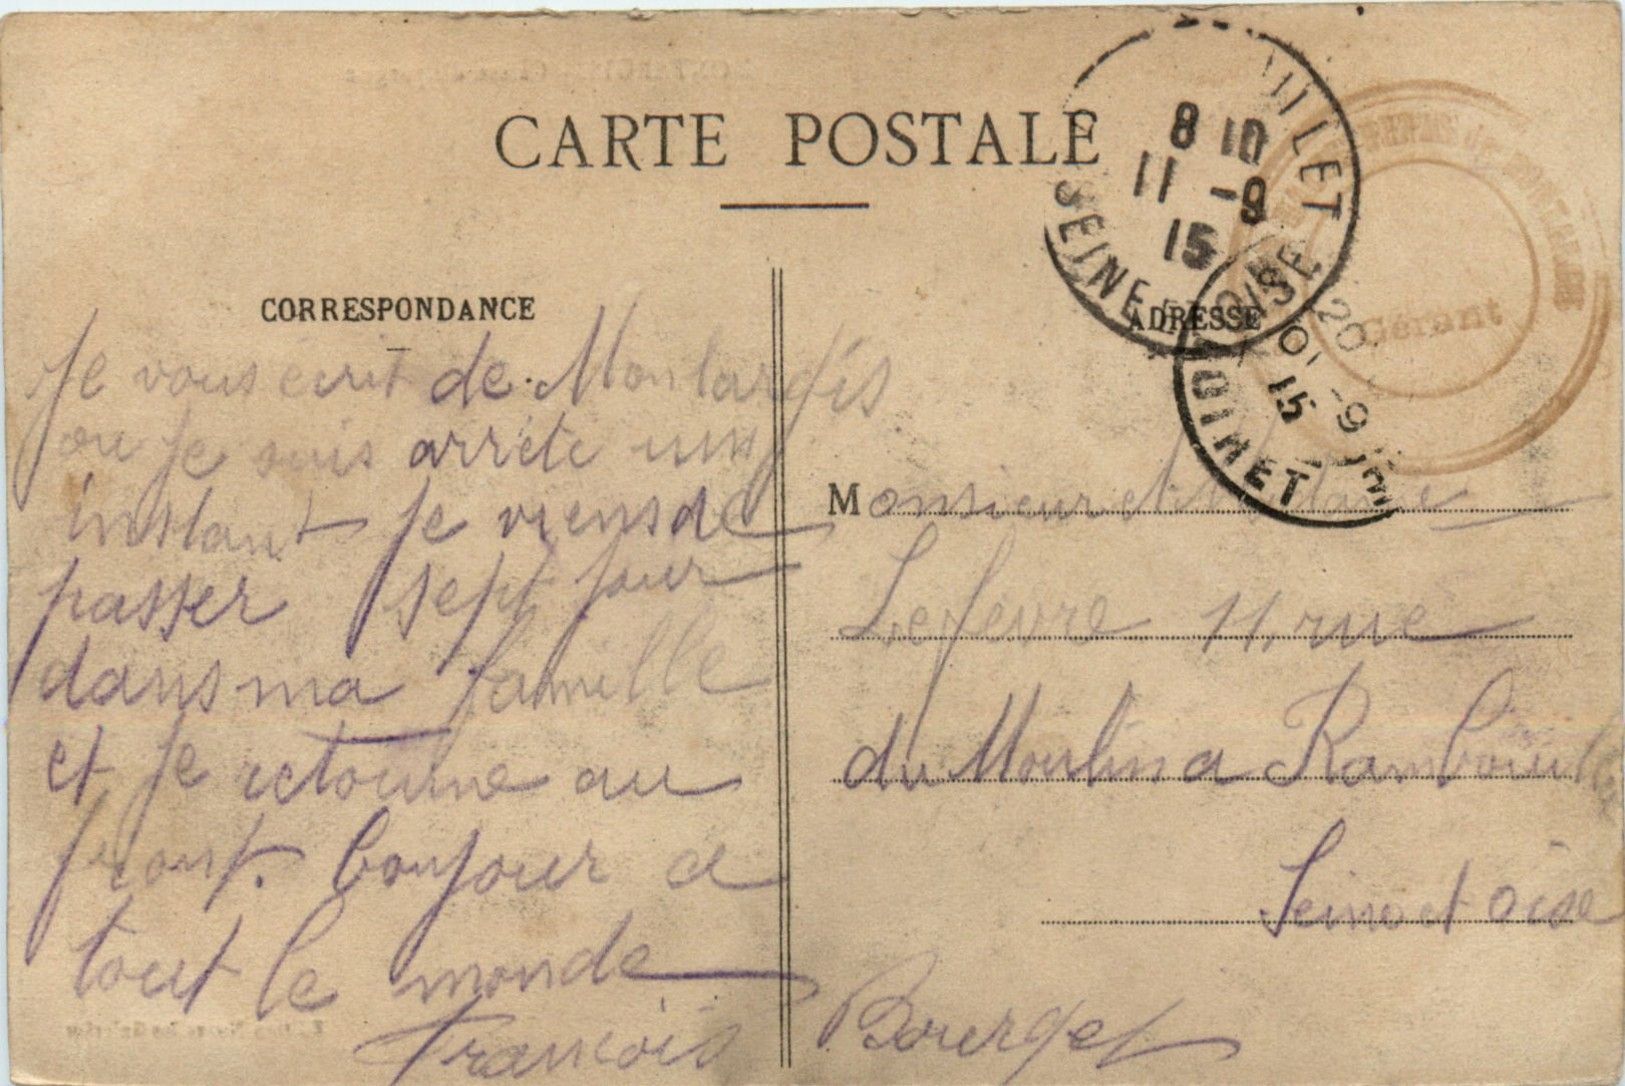 CARTE POSTALE
CORRESPONDANCE
Je vous écrit de Montargis
ou je suis arrété
instant je viens de
passer sept jour
dans ma famille
et je retourne au
front. bonjour a
tout le monde
François Bourget
ADRESSE
Monsieur et Madame
Lefevre 11, rue
du Moulin a Rambouillet
Seine et oise
8 10
11 -9
15
SEINE ET OISE
20
10 -9
15
Gérant